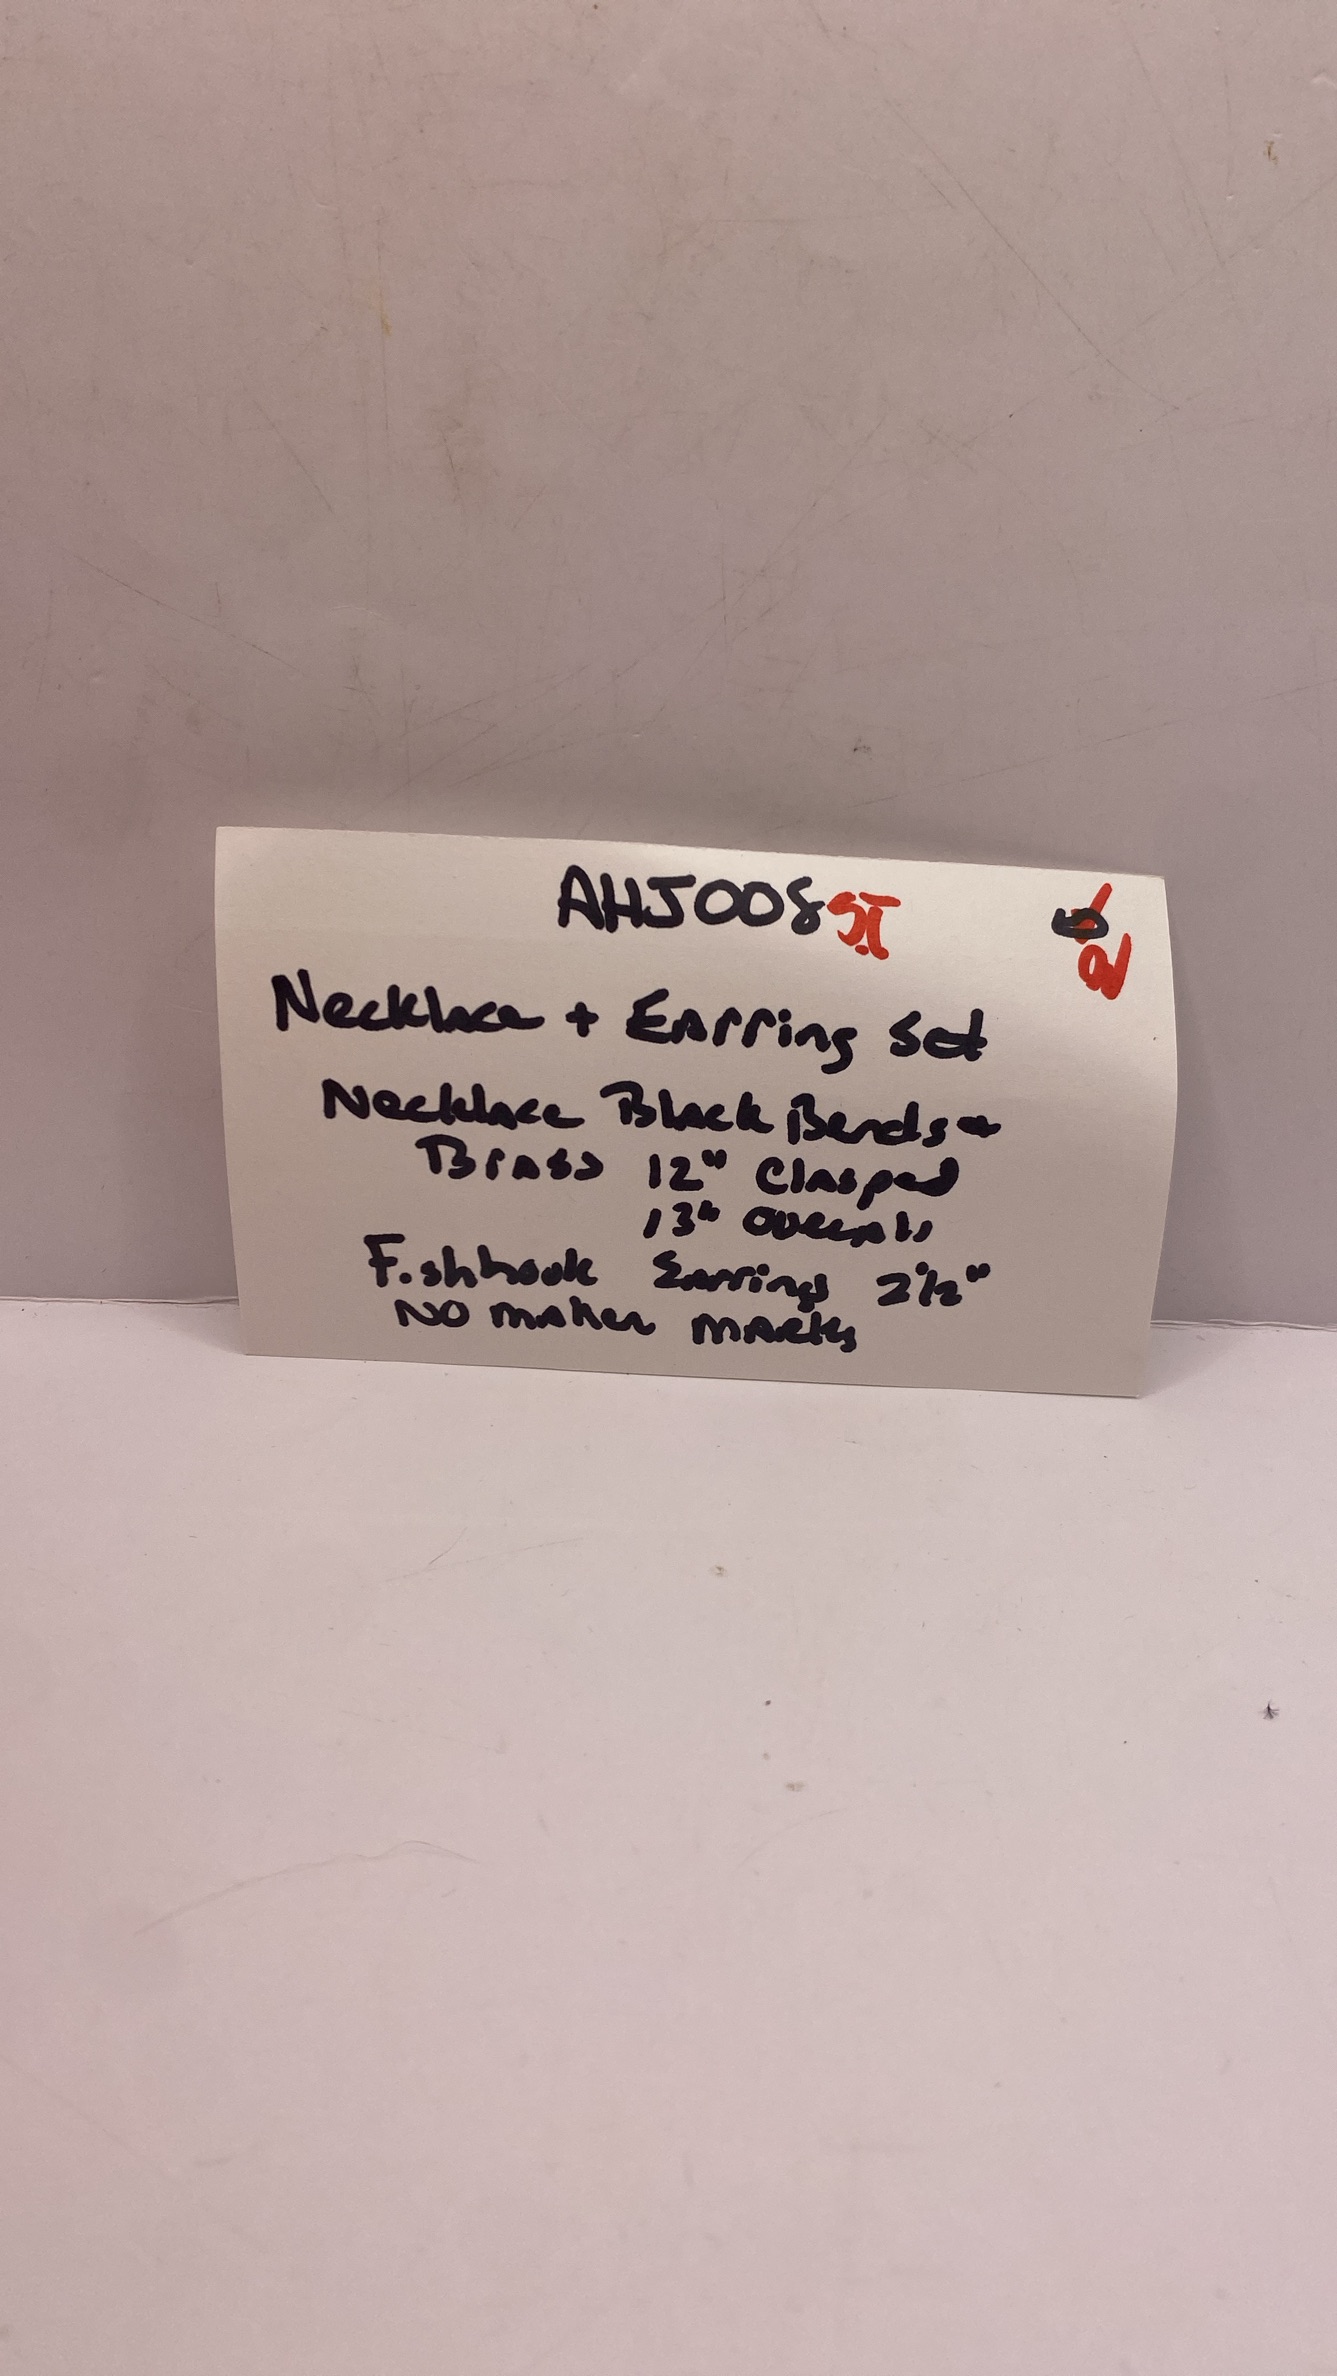 AHJ008
Necklace + Earring Set
Necklace Black Beads +
Brass 12" Clasped
13" overall
Fishhook Earrings 2½"
NO maker marks